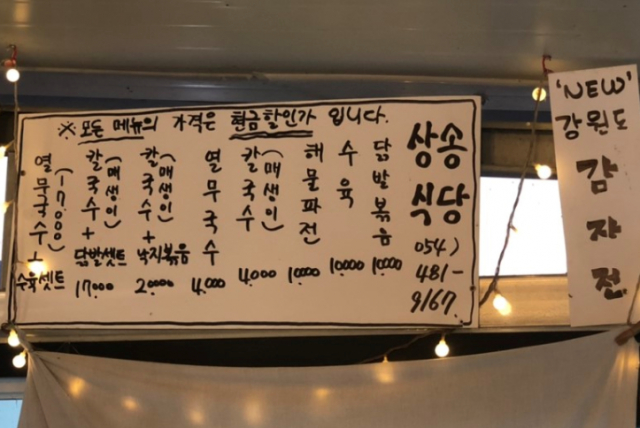 ※ 모든 메뉴의 가격은 현금할인가 입니다.
열무국수+ (17000)
수육셋트
칼국수+ (매생이)
닭발셋트
17000
칼국수+ (매생이)
낙지볶음
20000
열무국수
4000
칼국수 (매생이)
4000
해물파전
10000
수육
10000
닭발볶음
10000
상송
식당
054)
481-
9167.
'NEW'
강원도
감자전